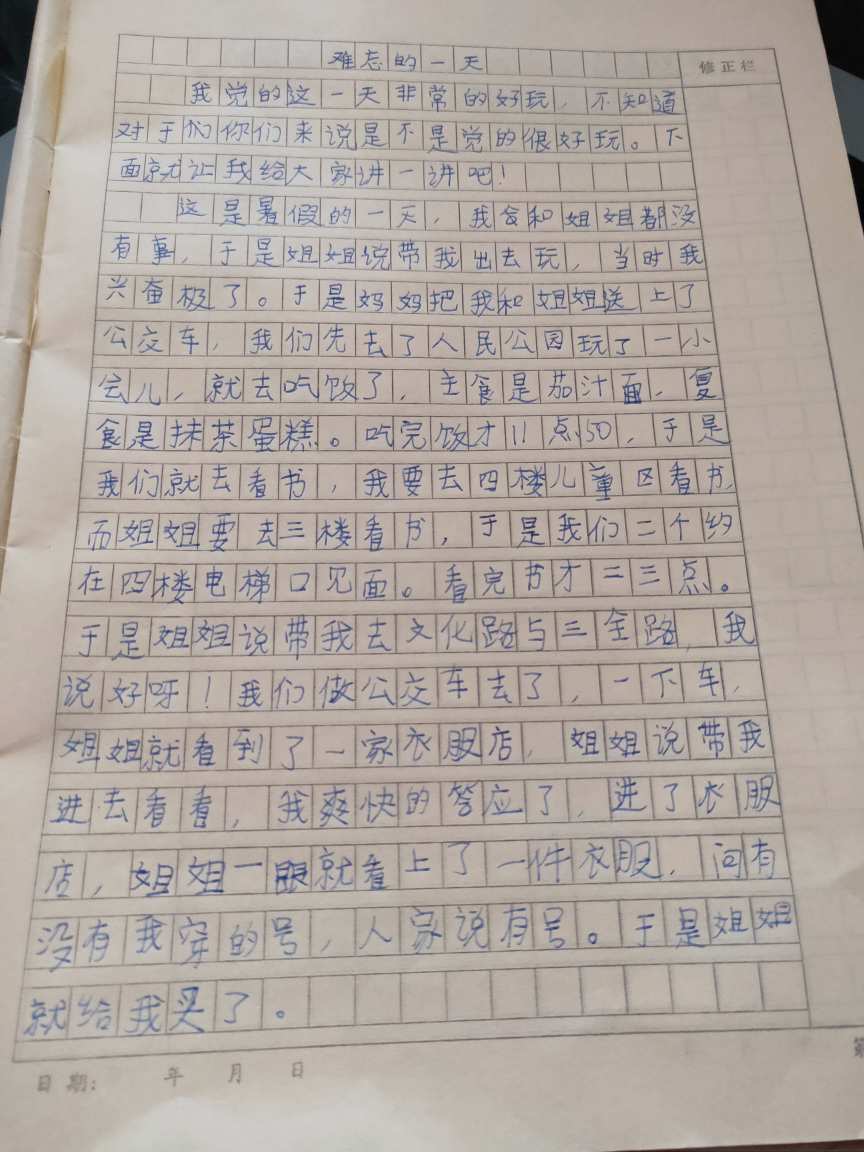 难忘的一天
修正栏
我觉的这一天非常的好玩，不知道
对于你们来说是不是觉的很好玩。下
面就让我给大家讲一讲吧！
这是暑假的一天，我和姐姐都没
有事，于是姐姐说带我出去玩，当时我
兴奋极了。于是妈妈把我和姐姐送上了
公交车，我们先去了人民公园玩了一小
会儿，就去吃饭了，主食是茄汁面，复
食是抹茶蛋糕。吃完饭才11点50，于是
我们就去看书，我要去四楼儿童区看书，
而姐姐要去三楼看书，于是我们二个约
在四楼电梯口见面。看完书才二三点。
于是姐姐说带我去文化路与三全路，我
说好呀！我们做公交车去了，一下车，
姐姐就看到了一家衣服店，姐姐说带我
进去看看，我爽快的答应了，进了衣服
店，姐姐一眼就看上了一件衣服，问有
没有我穿的号，人家说有号。于是姐姐
就给我买了。
日期： 年 月 日
第